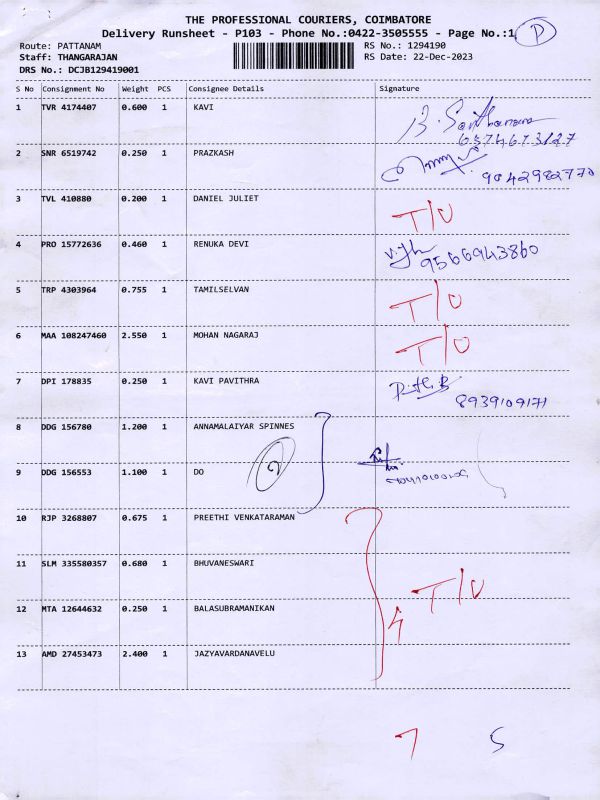 THE PROFESSIONAL COURIERS, COIMBATORE
Delivery Runsheet - P103 - Phone No.:0422-3505555 - Page No.:1 P
Route: PATTANAM RS No.: 1294190
Staff: THANGARAJAN RS Date: 22-Dec-2023
DRS No.: DCJB129419001
S No Consignment No Weight PCS Consignee Details Signature
1 TVR 4174407 0.600 1 KAVI
2 SNR 6519742 0.250 1 PRAZKASH
9042982770
3 TVL 410880 0.200 1 DANIEL JULIET
T/O
4 PRO 15772636 0.460 1 RENUKA DEVI
9566943860
5 TRP 4303964 0.755 1 TAMILSELVAN
T/O
6 MAA 108247460 2.550 1 MOHAN NAGARAJ
T/O
7 DPI 178835 0.250 1 KAVI PAVITHRA
8939109171
8 DDG 156780 1.200 1 ANNAMALAIYAR SPINNES
2
9 DDG 156553 1.100 1 DO
10 RJP 3268807 0.675 1 PREETHI VENKATARAMAN
11 SLM 335580357 0.680 1 BHUVANESWARI
T/O
12 MTA 12644632 0.250 1 BALASUBRAMANIKAN
4
13 AMD 27453473 2.400 1 JAZYAVARDANAVELU
7 5